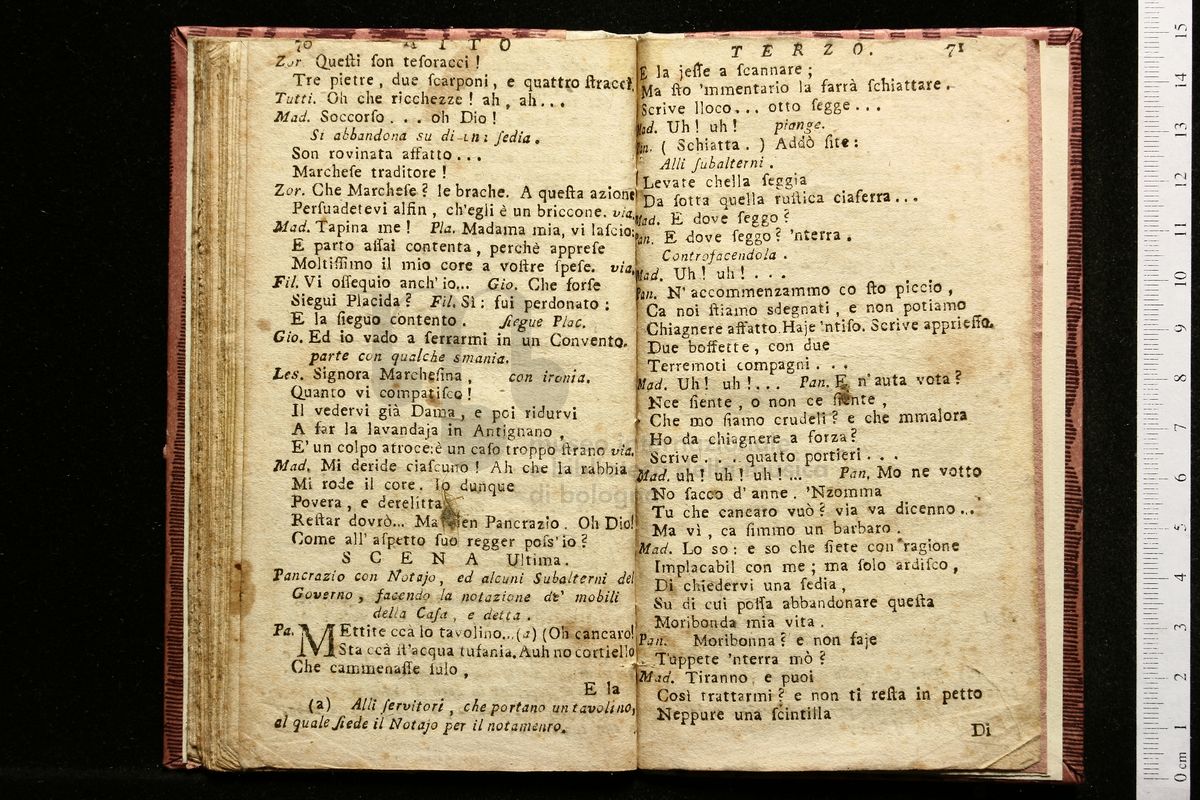 70 ATTO
Zor Questi son tesoracci!
Tre pietre, due scarponi, e quattro stracci.
Tutti. Oh che ricchezze! ah, ah...
Mad. Soccorso... oh Dio!
Si abbandona su di una sedia.
Son rovinata affatto...
Marchese traditore!
Zor. Che Marchese? le brache. A questa azione
Persuadetevi alfin, ch'egli è un briccone. via.
Mad. Tapina me! Pla. Madama mia, vi lascio:
E parto assai contenta, perchè apprese
Moltissimo il mio core a vostre spese. via.
Fil. Vi ossequio anch'io... Gio. Che forse
Siegui Placida? Fil. Sì: fui perdonato:
E la sieguo contento. siegue Plac.
Gio. Ed io vado a serrarmi in un Convento.
parte con qualche smania.
Les. Signora Marchesina, con ironia.
Quanto vi compatisco!
Il vedervi già Dama, e poi ridurvi
A far la lavandaja in Antignano,
E' un colpo atroce: è un caso troppo strano via.
Mad. Mi deride ciascuno! Ah che la rabbia
Mi rode il core. Io dunque
Povera, e derelitta
Restar dovrò... Ma vien Pancrazio. Oh Dio!
Come all'aspetto suo regger poss'io?
SCENA Ultima.
Pancrazio con Notajo, ed alcuni Subalterni del
Governo, facendo la notazione de' mobili
della Casa, e detta.
Pa. MEttite ccà lo tavolino...(a) (Oh cancaro!
Sta ccà st'acqua tufania. Auh no cortiello
Che cammenasse sulo,
E la
(a) Alli servitori, che portano un tavolino,
al quale siede il Notajo per il notamento.
TERZO. 71
E la jesse a scannare;
Ma sto 'mmentario la farrà schiattare.
Scrive lloco... otto segge...
Mad. Uh! uh! piange.
Pan. (Schiatta.) Addò site:
Alli subalterni.
Levate chella seggia
Da sotta quella rustica ciaferra...
Mad. E dove seggo?
Pan. E dove seggo? 'nterra.
Controfacendola.
Mad. Uh! uh!...
Pan. N'accommenzammo co sto piccio,
Ca noi stiamo sdegnati, e non potiamo
Chiagnere affatto. Haje 'ntiso. Scrive appriesso.
Due boffette, con due
Terremoti compagni...
Mad. Uh! uh!... Pan. E n'auta vota?
Nce siente, o non ce siente,
Che mo siamo crudeli? e che mmalora
Ho da chiagnere a forza?
Scrive... quatto portieri...
Mad. uh! uh! uh!... Pan. Mo ne votto
No sacco d'anne. 'Nzomma
Tu che cancaro vuò? via va dicenno...
Ma vì, ca simmo un barbaro.
Mad. Lo so: e so che siete con ragione
Implacabil con me; ma solo ardisco,
Di chiedervi una sedia,
Su di cui possa abbandonare questa
Moribonda mia vita.
Pan. Moribonna? e non faje
Tuppete 'nterra mò?
Mad. Tiranno, e puoi
Così trattarmi? e non ti resta in petto
Neppure una scintilla
Di